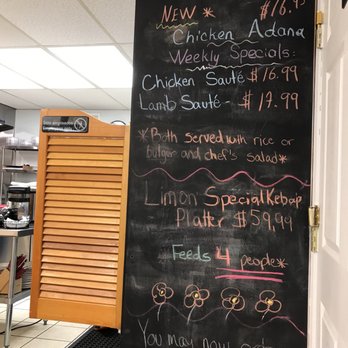 NEW *
$16.95
Chicken Adana
Weekly Specials:
Chicken Sauté $16.99
Lamb Sauté - $17.99
*Both served with rice or
bulger and chef's salad*
Limon Special Kebap
Platter $59.99
Feeds 4 people*
You may now